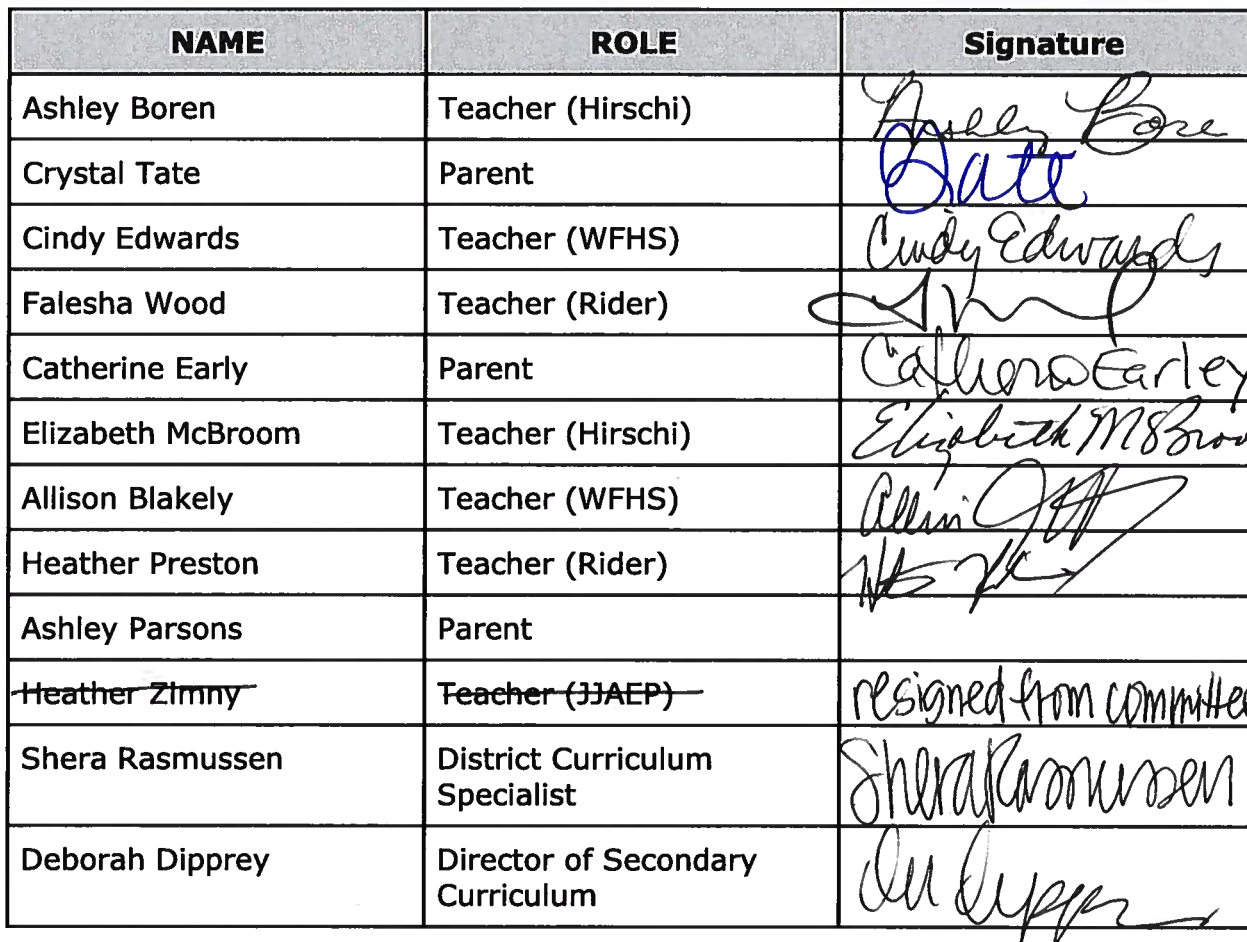 NAME ROLE Signature
Ashley Boren Teacher (Hirschi) Ashley Bore
Crystal Tate Parent
Cindy Edwards Teacher (WFHS) Cindy Edwards
Falesha Wood Teacher (Rider)
Catherine Early Parent Catherine Earley
Elizabeth McBroom Teacher (Hirschi) Elizabeth McBroo
Allison Blakely Teacher (WFHS)
Heather Preston Teacher (Rider)
Ashley Parsons Parent
Heather Zimny Teacher (JJAEP) resigned from committee
Shera Rasmussen District Curriculum Shera Rasmussen
Specialist
Deborah Dipprey Director of Secondary
Curriculum